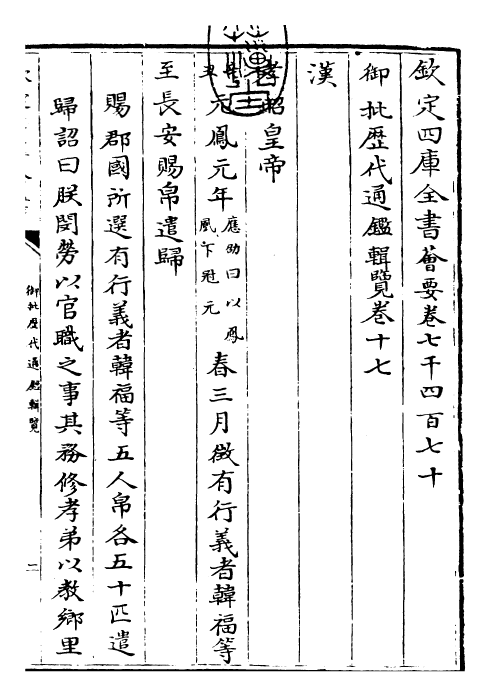 欽定四庫全書薈要卷七千四百七十
御批歴代通鑑輯覽卷十七
漢
孝昭皇帝
丑元鳳元年應劭曰以鳳凰下冠元春三月徵有行義者韓福等
至長安賜帛遣歸
賜郡國所選有行義者韓福等五人帛各五十匹遣
歸詔曰朕閔勞以官職之事其務修孝弟以教鄉里
御批歴代通鑑輯覽